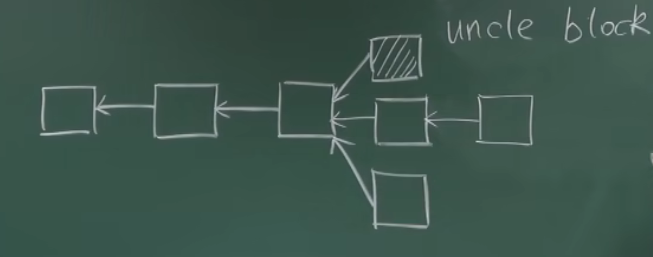 uncle block